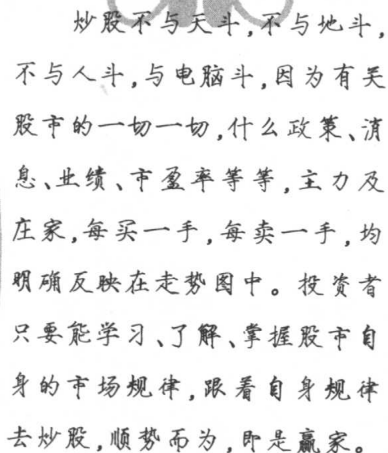 炒股不与天斗,不与地斗,
不与人斗,与电脑斗,因为有关
股市的一切一切,什么政策、消
息、业绩、市盈率等等,主力及
庄家,每买一手,每卖一手,均
明确反映在走势图中。投资者
只要能学习、了解、掌握股市自
身的市场规律,跟着自身规律
去炒股,顺势而为,即是赢家。